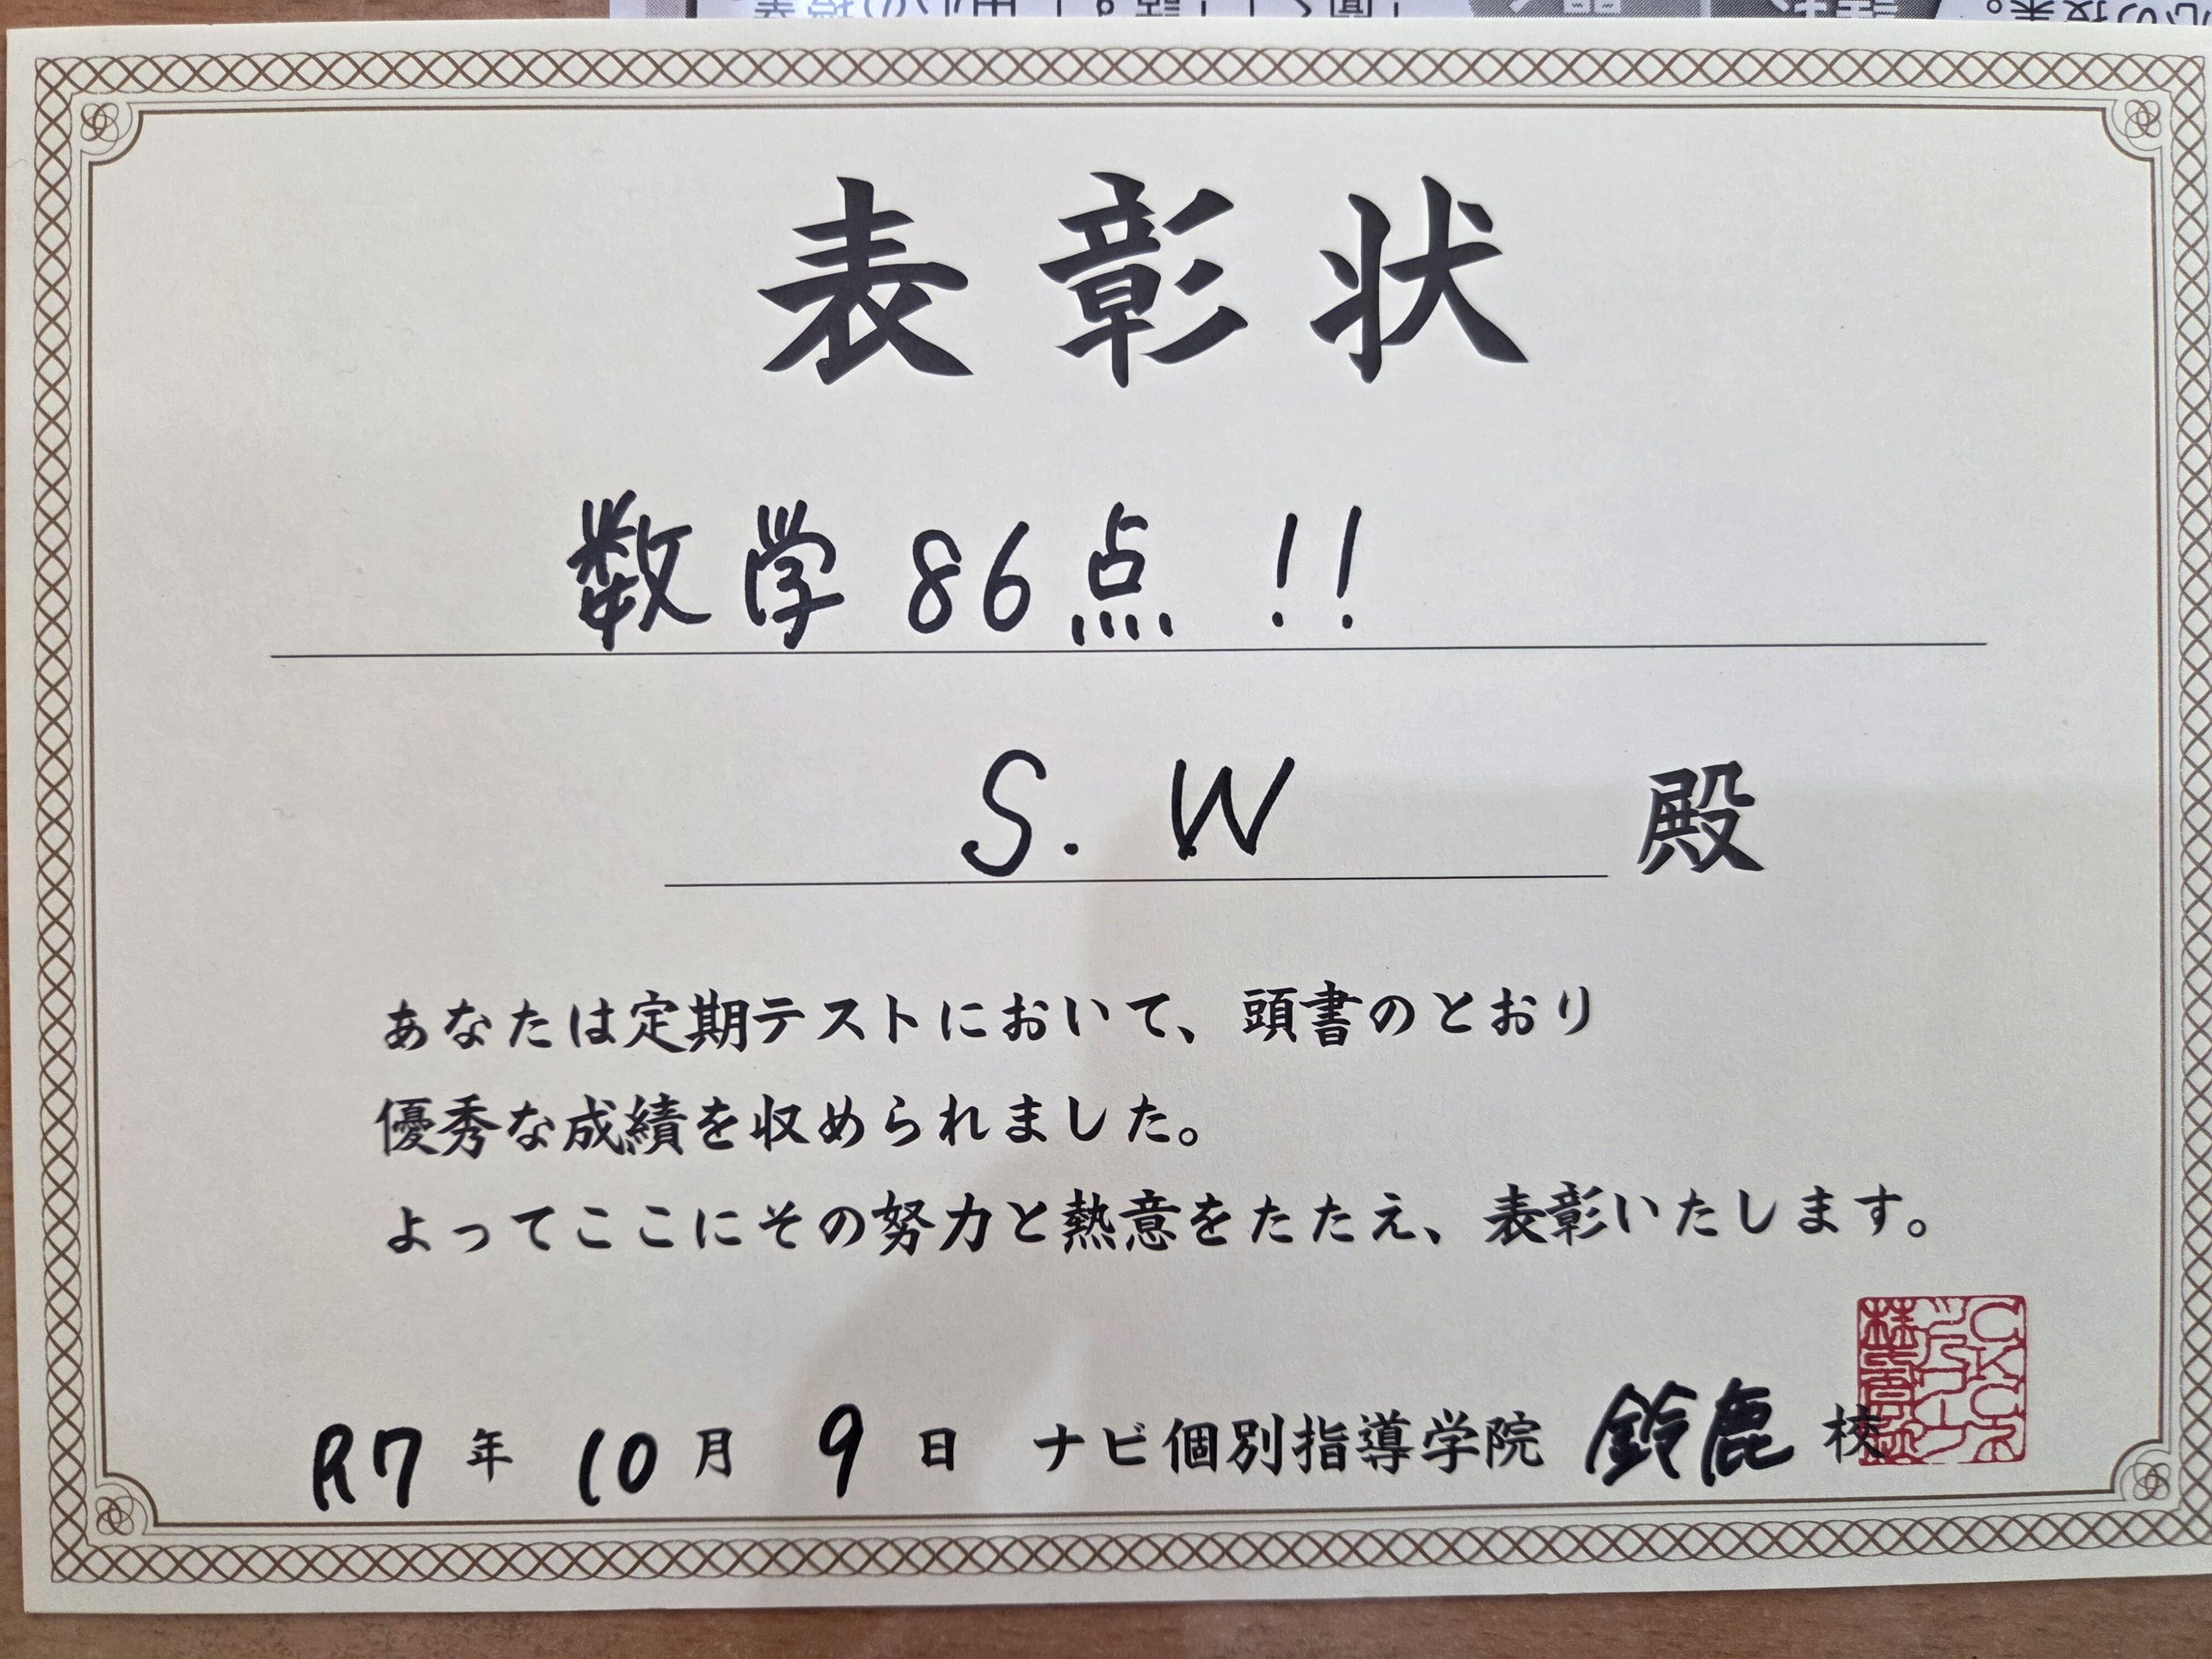 表彰状
数学86点!!
S. W 殿
あなたは定期テストにおいて、頭書のとおり
優秀な成績を収められました。
よってここにその努力と熱意をたたえ、表彰いたします。
R7年 10月 9日 ナビ個別指導学院 鈴鹿校